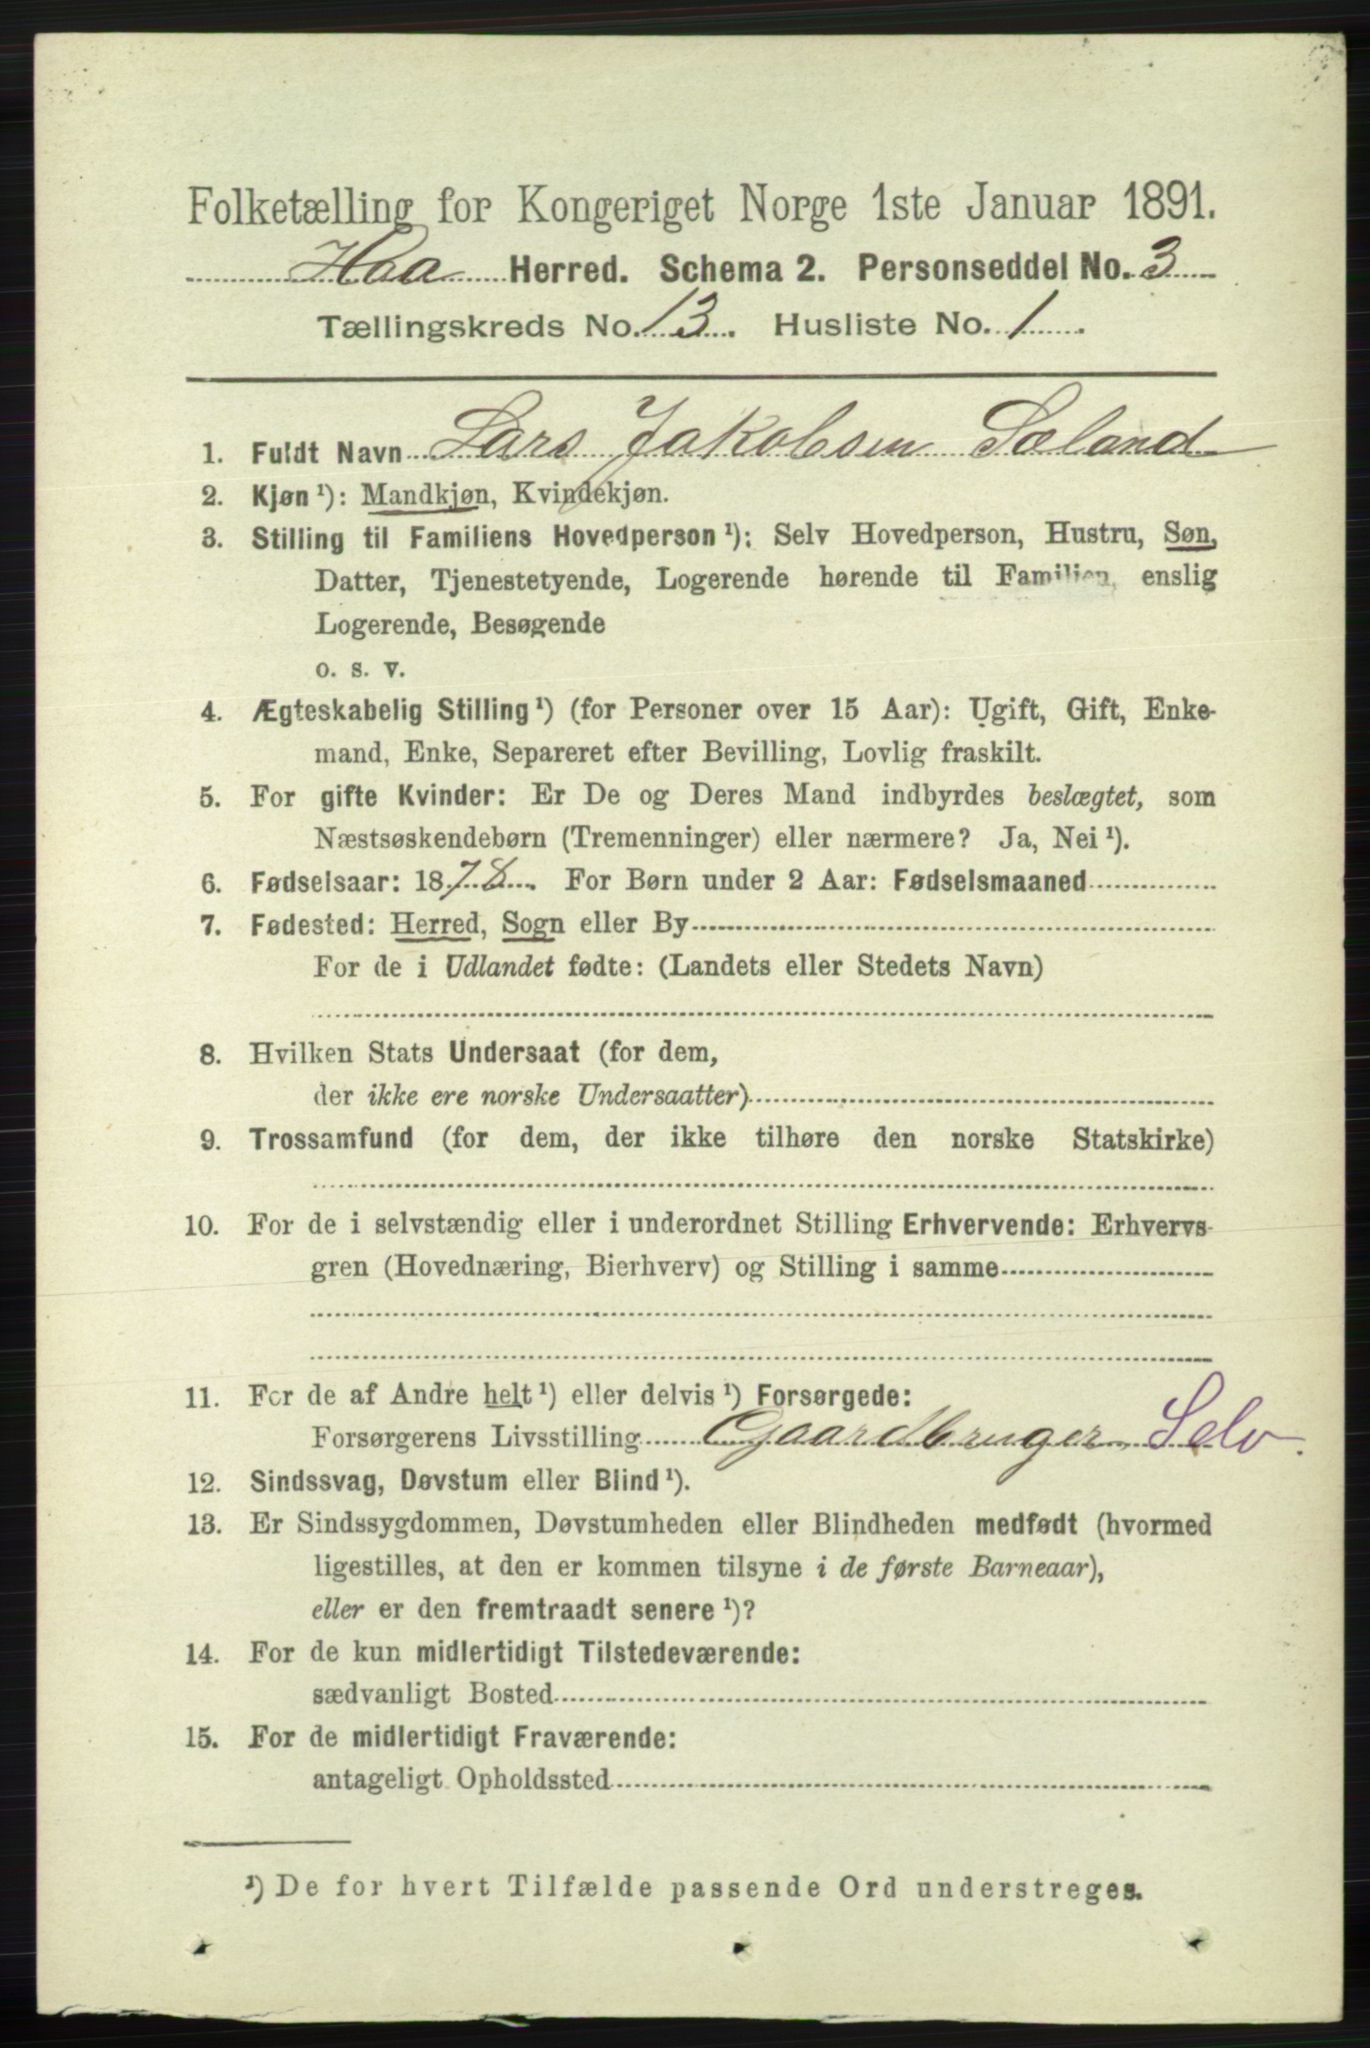 Folketælling for Kongeriget Norge 1ste Januar 1891.
Haa Herred. Schema 2. Personseddel No. 3
Tællingskreds No. 13. Husliste No. 1.
1. Fuldt Navn Lars Jakobsen Sæland
2. Kjøn ¹): Mandkjøn, Kvindekjøn.
3. Stilling til Familiens Hovedperson ¹): Selv Hovedperson, Hustru, Søn,
Datter, Tjenestetyende, Logerende hørende til Familien, enslig
Logerende, Besøgende
o. s. v.
4. Ægteskabelig Stilling ¹) (for Personer over 15 Aar): Ugift, Gift, Enke-
mand, Enke, Separeret efter Bevilling, Lovlig fraskilt.
5. For gifte Kvinder: Er De og Deres Mand indbyrdes beslægtet, som
Næstsøskendebørn (Tremenninger) eller nærmere? Ja, Nei ¹).
6. Fødselsaar: 1878. For Børn under 2 Aar: Fødselsmaaned
7. Fødested: Herred, Sogn eller By
For de i Udlandet fødte: (Landets eller Stedets Navn)
8. Hvilken Stats Undersaat (for dem,
der ikke ere norske Undersaatter)
9. Trossamfund (for dem, der ikke tilhøre den norske Statskirke)
10. For de i selvstændig eller i underordnet Stilling Erhvervende: Erhvervs-
gren (Hovednæring, Bierhverv) og Stilling i samme
11. For de af Andre helt ¹) eller delvis ¹) Forsørgede:
Forsørgerens Livsstilling Gaardbruger, Selv.
12. Sindssvag, Døvstum eller Blind ¹).
13. Er Sindssygdommen, Døvstumheden eller Blindheden medfødt (hvormed
ligestilles, at den er kommen tilsyne i de første Barneaar),
eller er den fremtraadt senere ¹)?
14. For de kun midlertidigt Tilstedeværende:
sædvanligt Bosted
15. For de midlertidigt Fraværende:
antageligt Opholdssted
¹) De for hvert Tilfælde passende Ord understreges.